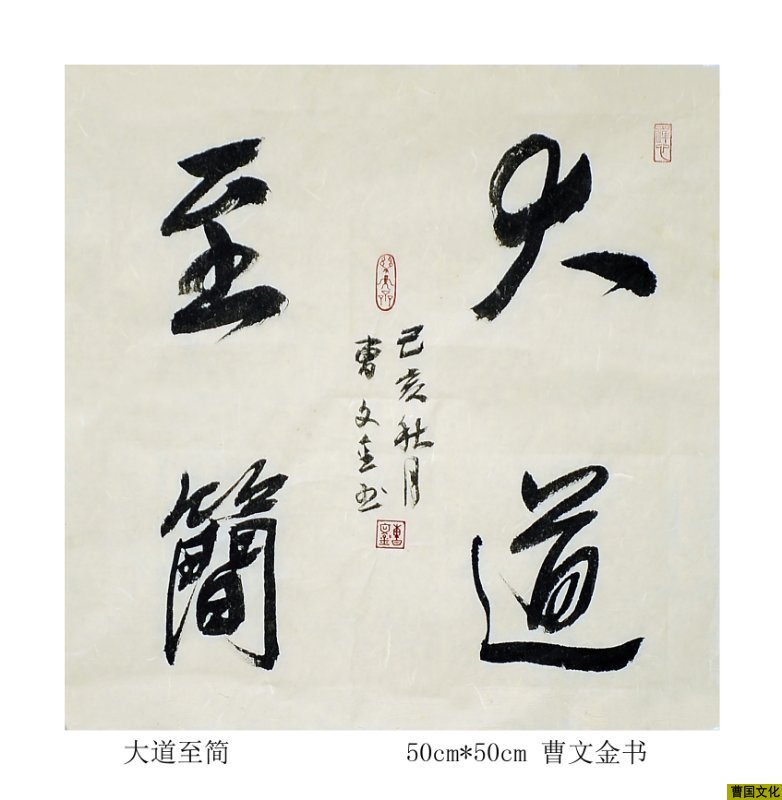 大道
至簡
己亥秋月
曹文金书
大道至简
50cm*50cm 曹文金书
曹国文化